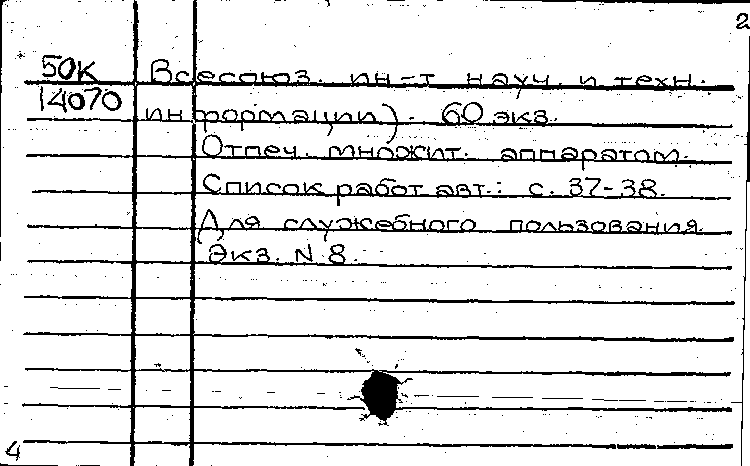 2
50К Всесоюз. ин-т науч. и техн.
14070 информации). 60 экз.
Отпеч. множит. аппаратом.
Список работ авт.: с. 37-38.
Для служебного пользования
Экз. N 8.
4